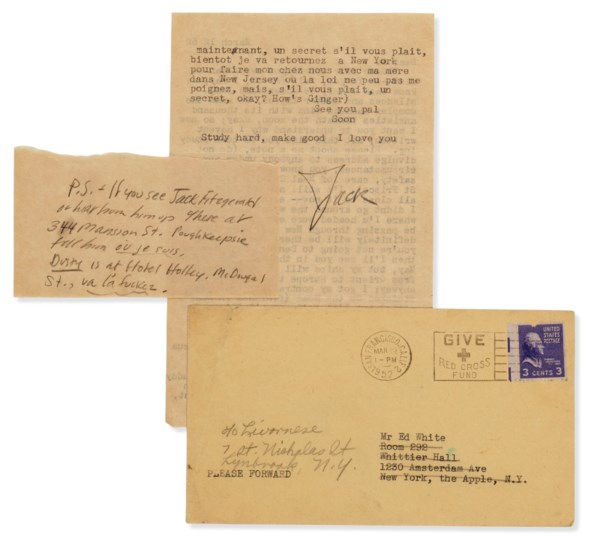 maintenant, un secret s'il vous plait,
bientot je va retournez a New York
pour faire mon chez nous avec ma mere
dans New Jersey ou la loi ne peu pas me
poignez, mais, s'il vous plait, un
secret, okay? How's Ginger)
See you pal
Soon
Study hard, make good I love you
Jack
P.S. - If you see Jack Fitzgerald
or hear from him up there at
344 Mansion St. Poughkeepsie
tell him où je suis.
Dusty is at Hotel Holley, McDougal
St., va la
SAN FRANCISCO, CALIF.
MAR
1 - PM
1952
GIVE
RED CROSS
FUND
UNITED
STATES
POSTAGE
3 CENTS 3
c/o Livornese
7 St. Nicholas St
Lynbrook, N.Y.
PLEASE FORWARD
Mr Ed White
Room 292
Whittier Hall
1230 Amsterdam Ave
New York, the Apple, N.Y.